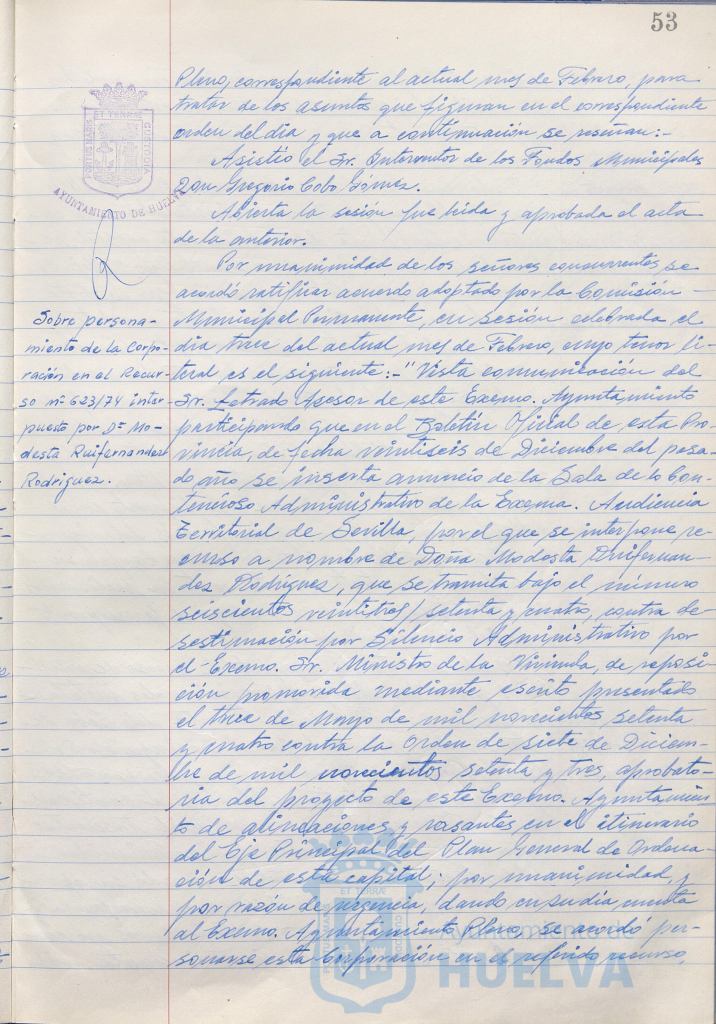 53
Pleno, correspondiente al actual mes de Febrero, para
tratar de los asuntos que figuran en el correspondiente
orden del día y que a continuación se reseñan:-
Asistió el Sr. Interventor de los Fondos Municipales
Don Gregorio Cobo Gómez.
Abierta la sesión fue leída y aprobada el acta
de la anterior.
Por unanimidad de los señores concurrentes se
acordó ratificar acuerdo adoptado por la Comisión
Municipal Permanente, en sesión celebrada el
día trece del actual mes de Febrero, cuyo tenor li-
teral es el siguiente:- "Vista comunicación del
Sr. Letrado Asesor de este Excmo. Ayuntamiento
participando que en el Boletín Oficial de esta Pro-
vincia, de fecha veintiseis de Diciembre del pasa-
do año se inserta anuncio de la Sala de lo Con-
tencioso Administrativo de la Excma. Audiencia
Territorial de Sevilla, por el que se interpone re-
curso a nombre de Doña Modesta Ruifernan-
dez Rodriguez, que se tramita bajo el número
seiscientos veintitres/setenta y cuatro, contra de-
sestimación por Silencio Administrativo por
el Excmo. Sr. Ministro de la Vivienda, de reposi-
ción promovida mediante escrito presentado
el trece de Mayo de mil novecientos setenta
y cuatro contra la Orden de siete de Diciem-
bre de mil novecientos setenta y tres, aprobato-
ria del proyecto de este Excmo. Ayuntamien-
to de alineaciones y rasantes en el itinerario
del Eje Principal del Plan General de Ordena-
ción de esta capital; por unanimidad, y
por razón de urgencia, dando en su día, cuenta
al Excmo. Ayuntamiento Pleno, se acordó per-
sonarse esta Corporación en el referido recurso,
PORTUS MARIS ET TERRAE CUSTODIA
AYUNTAMIENTO DE HUELVA
Sobre persona-
miento de la Corpo-
ración en el Recur-
so nº 623/74 inter-
puesto por Dª Mo-
desta Ruifernandez
Rodriguez.
PORTUS MARIS ET TERRAE CUSTODIA
Ayuntamiento de
HUELVA